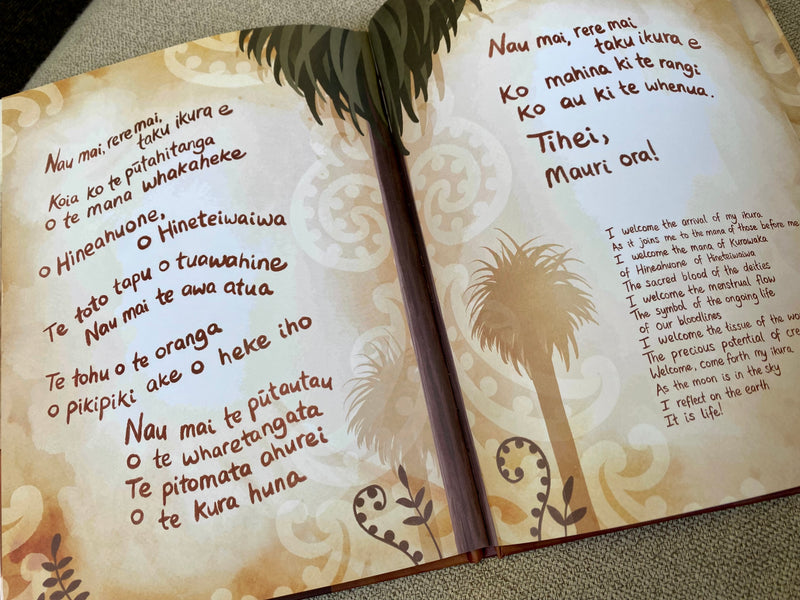 Nau mai, rere mai,
taku ikura e
Koia ko te pūtahitanga
o te mana whakaheke
o Hineahuone,
o Hineteiwaiwa
Te toto tapu o tuawahine
Nau mai te awa atua
Te tohu o te oranga
o pikipiki ake o heke iho
Nau mai te pūtautau
o te wharetangata
Te pitomata ahurei
o te kura huna
Nau mai, rere mai
taku ikura e
Ko mahina ki te rangi
Ko au ki te whenua.
Tihei,
Mauri ora!
I welcome the arrival of my ikura
As it joins me to the mana of those before me
I welcome the mana of Kurawaka
of Hineahuone of Hineteiwaiwa
The sacred blood of the deities
I welcome the menstrual flow
The symbol of the ongoing life
of our bloodlines
I welcome the tissue of the
The precious potential of
Welcome, come forth my ikura
As the moon is in the sky
I reflect on the earth
It is life!